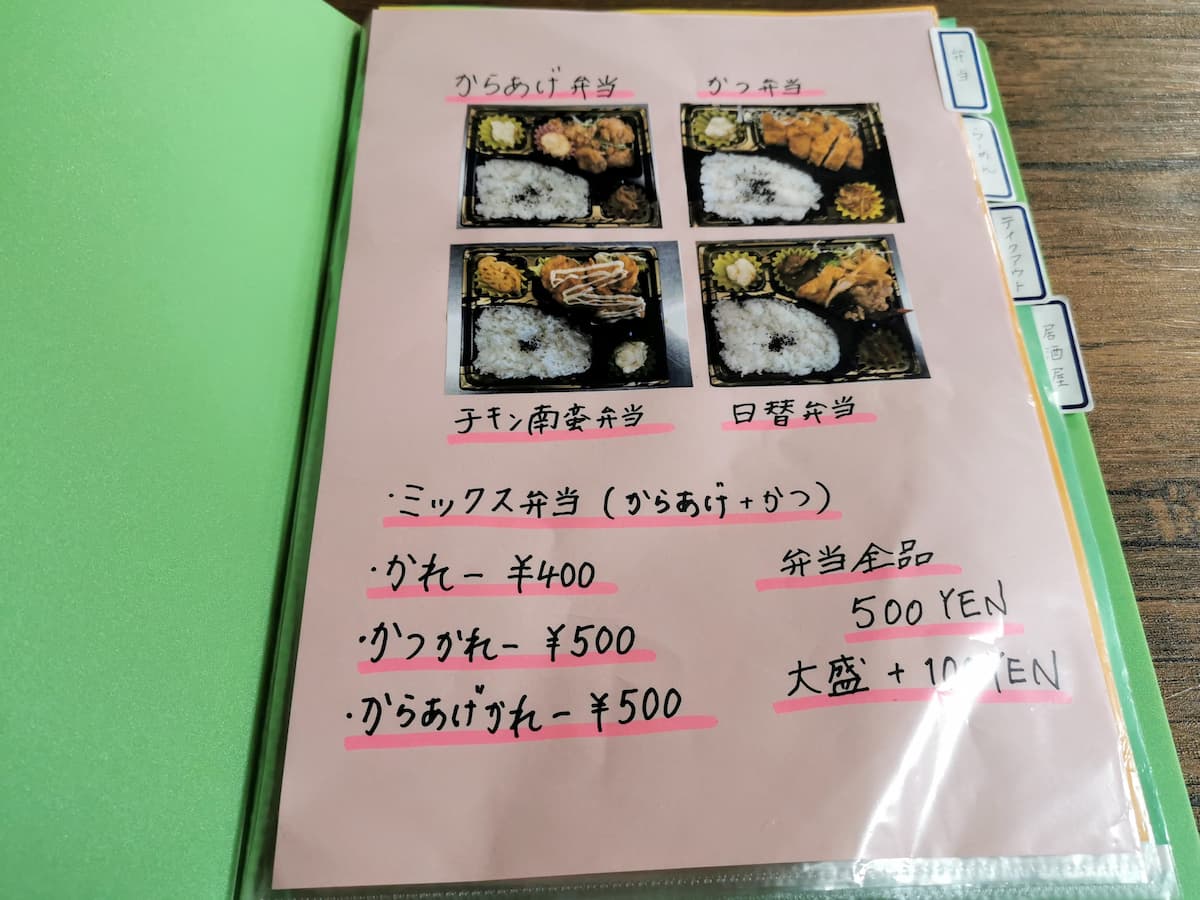 からあげ弁当
かつ弁当
チキン南蛮弁当
日替弁当
・ミックス弁当(からあげ+かつ)
・かれー ¥400
・かつかれー ¥500
・からあげかれー ¥500
弁当全品
500 YEN
大盛 + 100 YEN
弁当
らーめん
テイクアウト
居酒屋